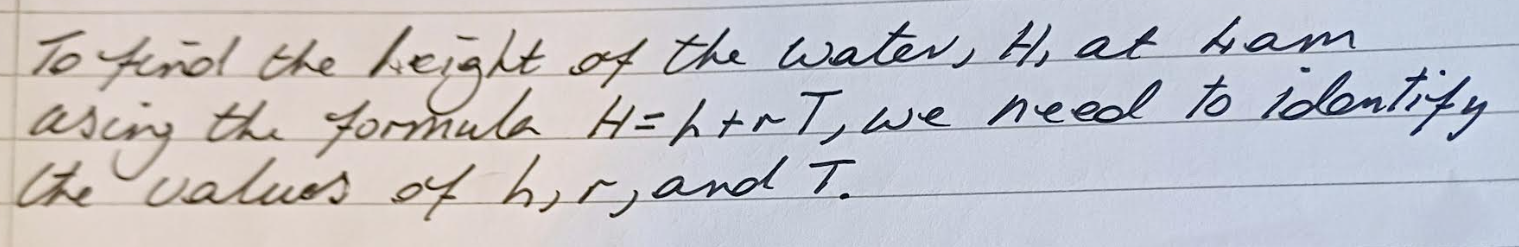 To find the height of the water, H, at 4am
using the formula H = h + rT, we need to identify
the values of h, r, and T.